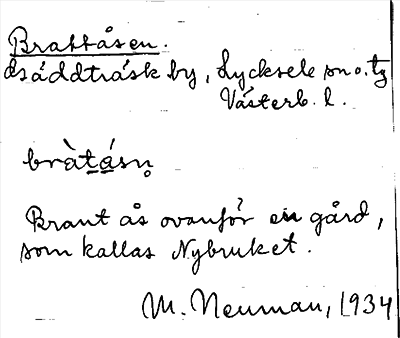 Brattåsen.
Gäddträsk by, Lycksele sn o. tg
Västerb. l.
bràtásn̥
Brant ås ovanför en gård,
som kallas Nybruket.
M. Neuman, 1934